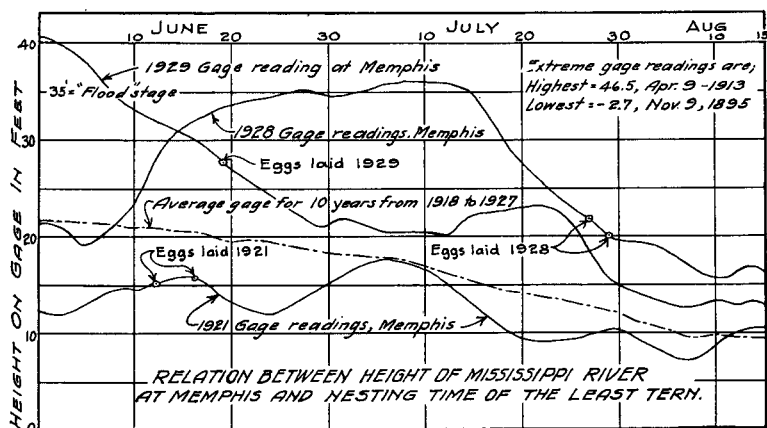 JUNE JULY AUG
10 20 30 10 20 30 10 15
40
30
20
10
HEIGHT ON GAGE IN FEET
1929 Gage reading at Memphis
35'="Flood" stage
Extreme gage readings are;
Highest=46.5, Apr. 9-1913
Lowest=-2.7, Nov. 9, 1895
1928 Gage readings. Memphis
Eggs laid 1929
Average gage for 10 years from 1918 to 1927
Eggs laid 1921
Eggs laid 1928
1921 Gage readings, Memphis
RELATION BETWEEN HEIGHT OF MISSISSIPPI RIVER
AT MEMPHIS AND NESTING TIME OF THE LEAST TERN.